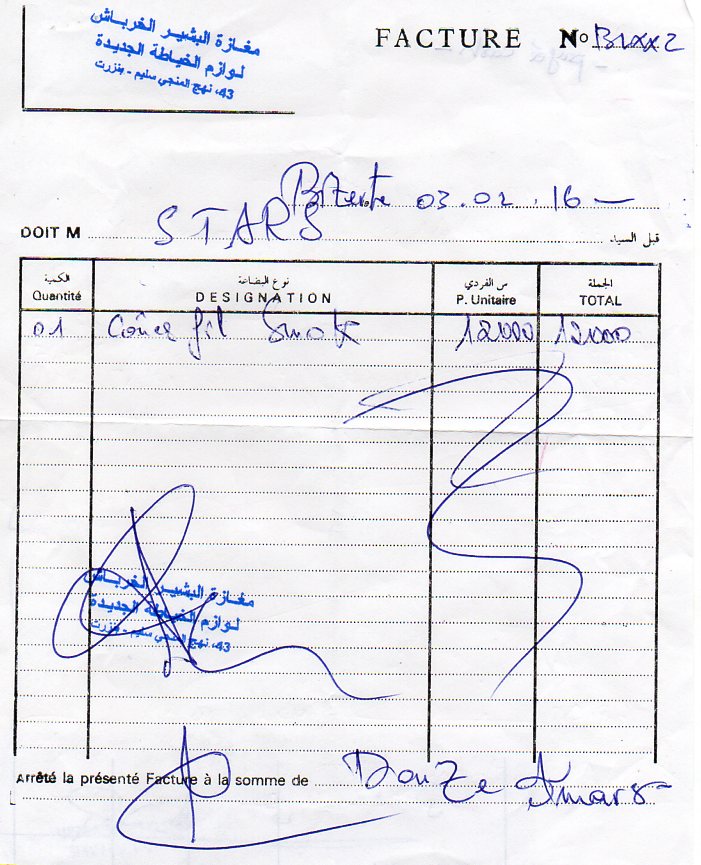 مغازة البشير الخرباش
لوازم الخياطة الجديدة
43، نهج المنجي سليم - بنزرت
FACTURE No
Bizerte 03.02.16
DOIT M STARS قبل السيد
الكمية نوع البضاعة من الفردي الجملة
Quantité DESIGNATION P. Unitaire TOTAL
01 fil Smok 12000 12000
مغازة البشير الخرباش
لوازم الخياطة الجديدة
43، نهج المنجي سليم - بنزرت
Arrêté la présenté Facture à la somme de Douze Dinars